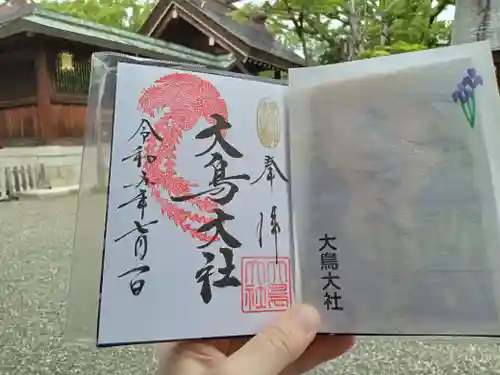 奉拝
大鳥大社
令和元年七月一日
大鳥大社
大鳥大社